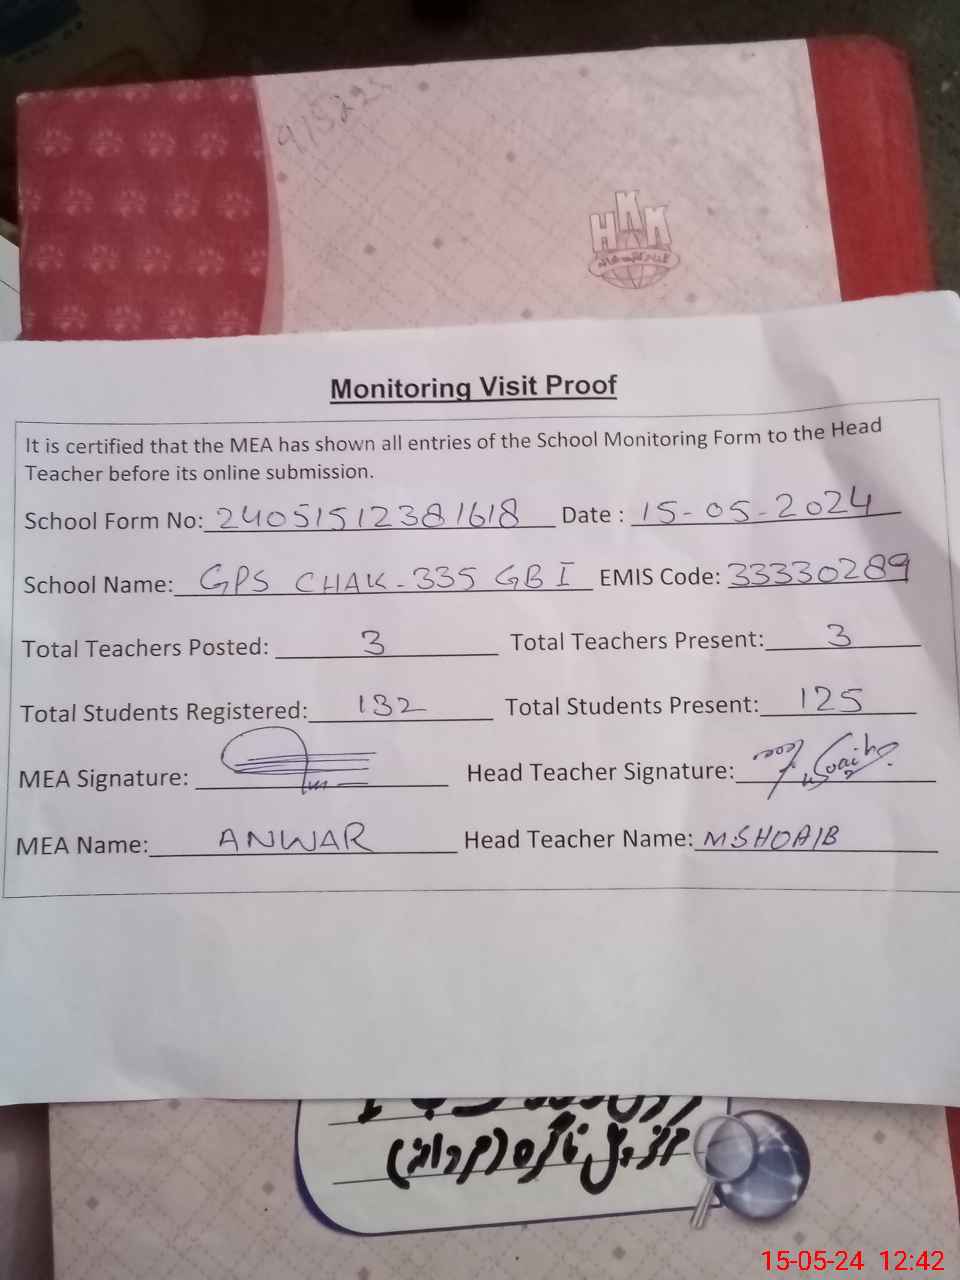 915225
HKK
Monitoring Visit Proof
It is certified that the MEA has shown all entries of the School Monitoring Form to the Head
Teacher before its online submission.
School Form No: 24051512381618 Date : 15-05-2024
School Name: GPS CHAK-335 GB I EMIS Code: 33330289
Total Teachers Posted: 3 Total Teachers Present: 3
Total Students Registered: 132 Total Students Present: 125
MEA Signature: Head Teacher Signature:
MEA Name: ANWAR Head Teacher Name: MSHOAIB
(مردانہ)
15-05-24 12:42